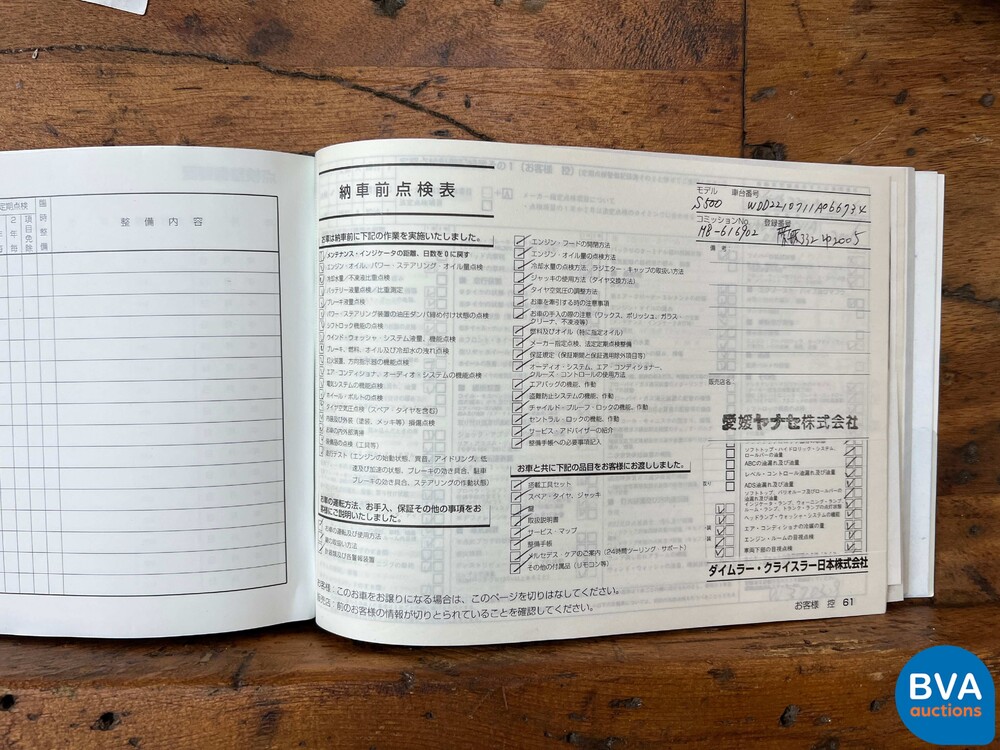 定期点検
臨時整備
2年毎
項目免除
整備内容
納車前点検表
お車は納車前に下記の作業を実施いたしました。
メンテナンス・インジケータの距離、日数を0に戻す
エンジン・オイル、パワー・ステアリング・オイル量点検
冷却水量/不凍液比重点検
バッテリー液量点検/比重測定
ブレーキ液量点検
パワー・ステアリング装置の油圧ダンパ締め付け状態の点検
シフトロック機能の点検
ウインド・ウォッシャ・システム液量、機能点検
ブレーキ、燃料、オイル及び冷却水の洩れ点検
灯火装置、方向指示器の機能点検
エア・コンディショナ、オーディオ・システムの機能点検
電気システムの機能点検
ホイール・ボルトの点検
タイヤ空気圧点検(スペア・タイヤを含む)
内装及び外装(塗装、メッキ等)損傷点検
お車の内外部清掃
装備品の点検(工具等)
走行テスト(エンジンの始動状態、異音、アイドリング、低
速及び加速の状態、ブレーキの効き具合、駐車
ブレーキの効き具合、ステアリングの作動状態)
お車の運転方法、お手入、保証その他の事項をお
客様にご説明いたしました。
お車の運転及び使用方法
鍵の取扱い方法
計器類及び各警報装置
エンジン・フードの開閉方法
エンジン・オイル量の点検方法
冷却水量の点検方法、ラジエター・キャップの取扱い方法
ジャッキの使用方法(タイヤ交換方法)
タイヤ空気圧の調整方法
お車を牽引する時の注意事項
お車の手入の際の注意(ワックス、ポリッシュ、ガラス・
クリーナ、不凍液等)
燃料及びオイル(特に指定オイル)
メーカー指定点検、法定定期点検整備
保証規定(保証期間と保証適用除外項目等)
オーディオ・システム、エア・コンディショナー、
クルーズ・コントロールの使用方法
エアバッグの機能、作動
盗難防止システムの機能、作動
チャイルド・プルーフ・ロックの機能、作動
セントラル・ロックの機能、作動
サービス・アドバイザーの紹介
整備手帳への必要事項記入
お車と共に下記の品目をお客様にお渡ししました。
搭載工具セット
スペア・タイヤ、ジャッキ
鍵
取扱説明書
サービス・マップ
整備手帳
メルセデス・ケアのご案内(24時間ツーリング・サポート)
その他の付属品(リモコン等)
モデル 車台番号
S500 WDD2210711A066734
コミッションNo. 登録番号
MB-616902 332 ゆ2005
備考
販売店名
愛媛ヤナセ株式会社
ソフトトップ・ハイドロリック・システム、
ロールバーの油量
ABCの油漏れ及び油量
レベル・コントロール油漏れ及び油量
ADS油漏れ及び油量
ソフトトップ、バリオルーフ及びロールバーの
油漏れ及び油量
インジケータ・ランプ、ウォーニング・ランプ、
ルーム・ランプ、トランク・ランプの点灯状態
ヘッドランプ・ウォッシャ・システムの機能
エア・コンディショナの冷媒の量
エンジン・ルームの目視点検
車両下部の目視点検
ダイムラー・クライスラー日本株式会社
お客様:このお車をお譲りになる場合は、このページを切りはなしてください。
販売店:前のお客様の情報が切りとられていることを確認してください。
お客様 控 61
BVA
auctions